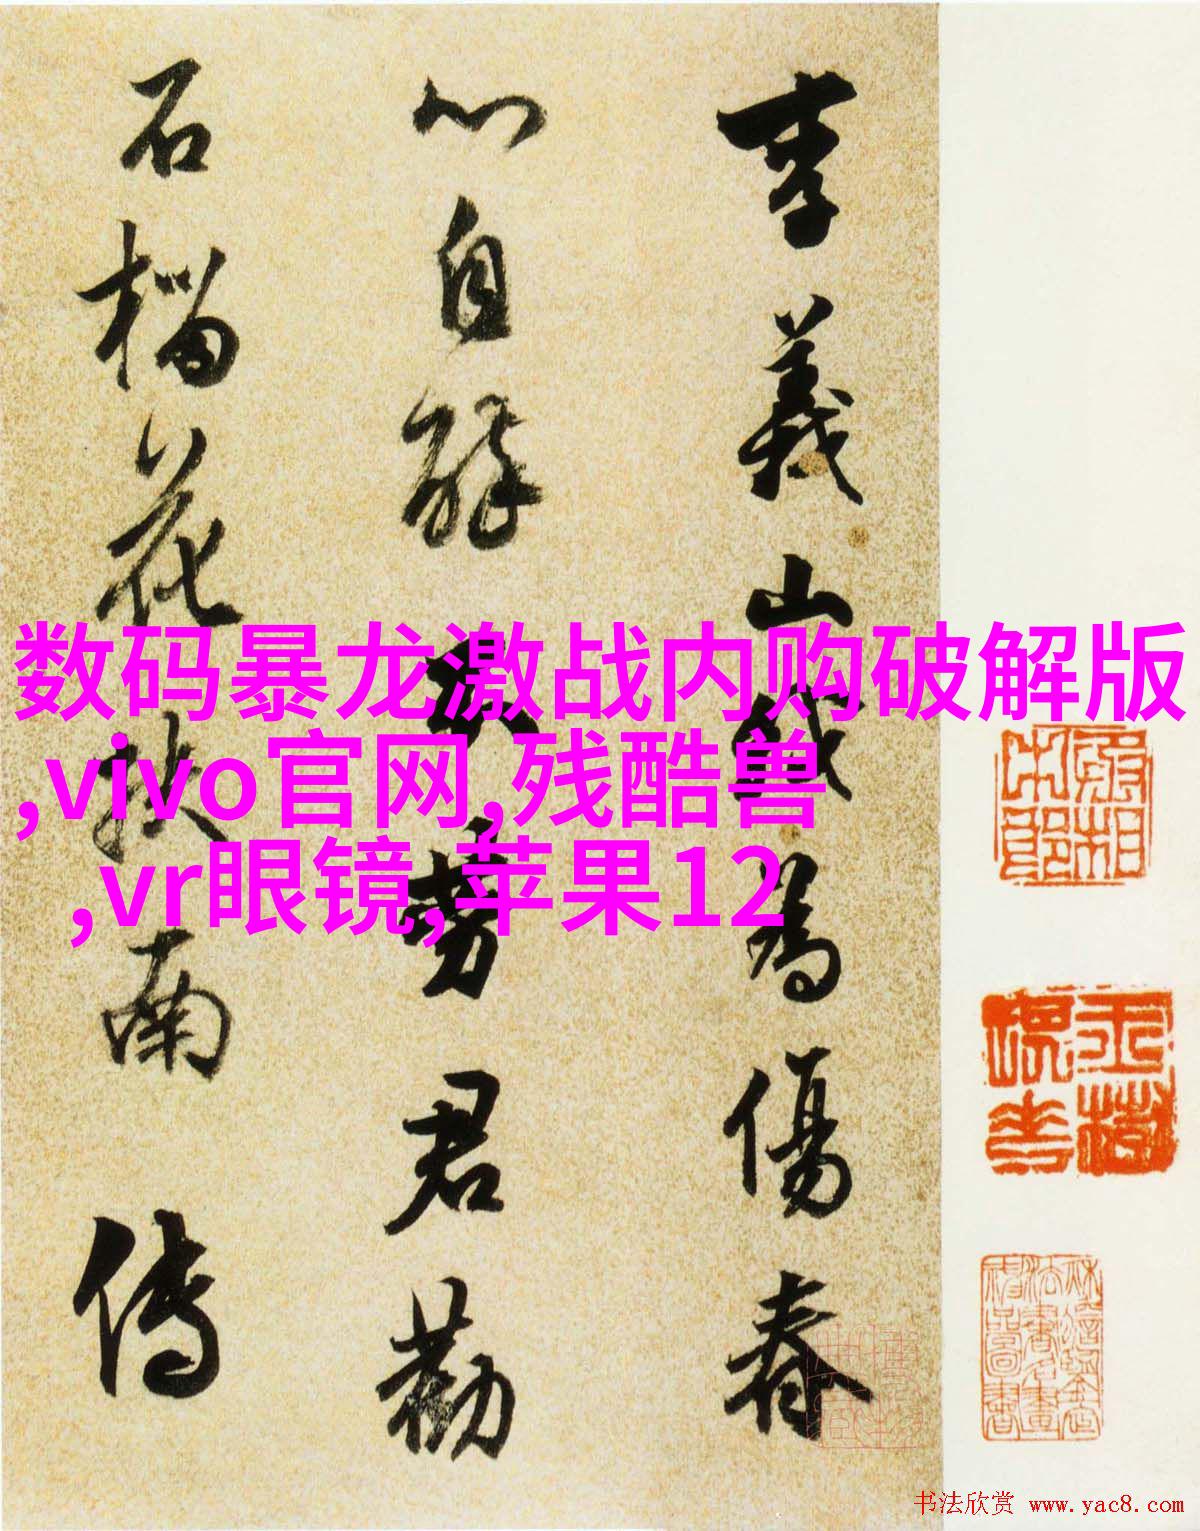 数码暴龙激战内购破解版
,vivo官网,残酷兽
,vr眼镜,苹果12
李義山我為傷春
心自醉不勞君勸
石榴花扶南傳
书法欣赏 www.yac8.com